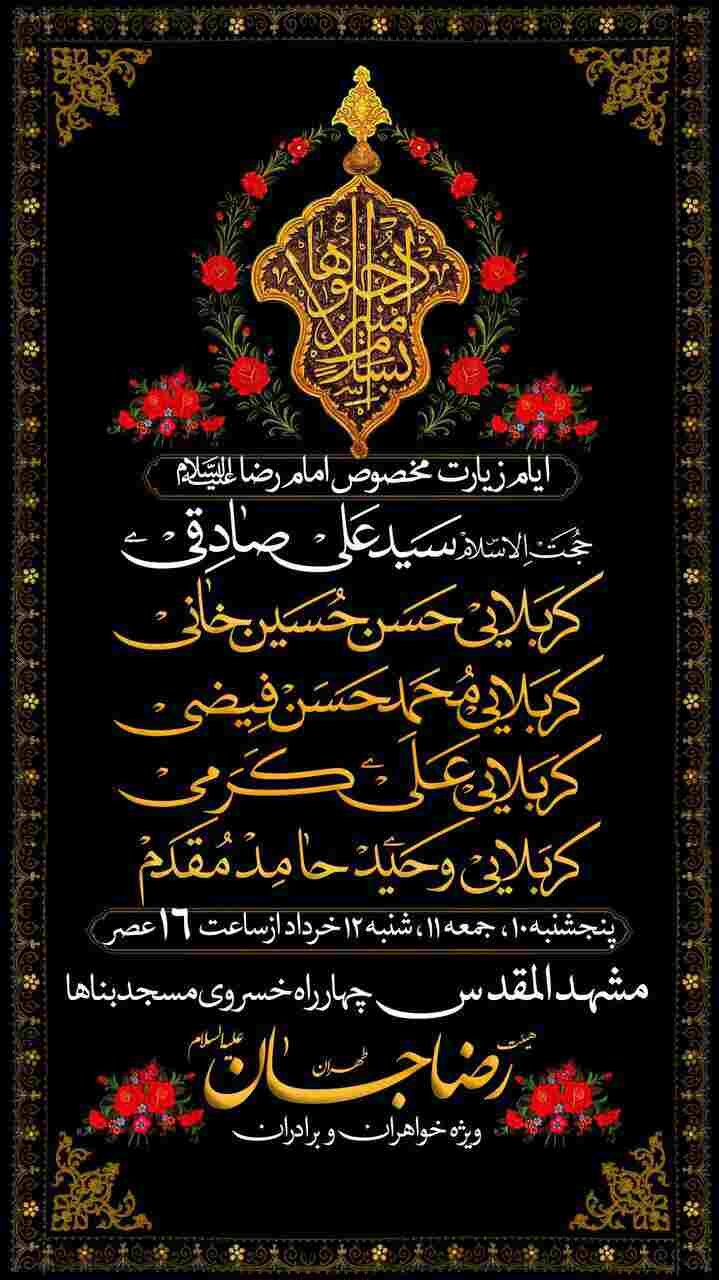 ادخلوها بسلام آمنین
ایام زیارت مخصوص امام رضا علیه‌السلام
حُجَت اِلاسلام سَیَد عَلی صادِقی
کَربَلایی حَسَن حُسَین خانی
کَربَلایی مُحَمَد حَسَن فِیضی
کَربَلایی عَلی کَرَمی
کَربَلایی وَحَید حامِد مُقَدَم
پنجشنبه ۱۰، جمعه ۱۱، شنبه ۱۲ خرداد از ساعت ۱۶ عصر
مشهدالمقدس چهارراه خسروی مسجد بناها
هیئت رضا جان علیه‌السلام طهران
ویژه خواهران و برادران